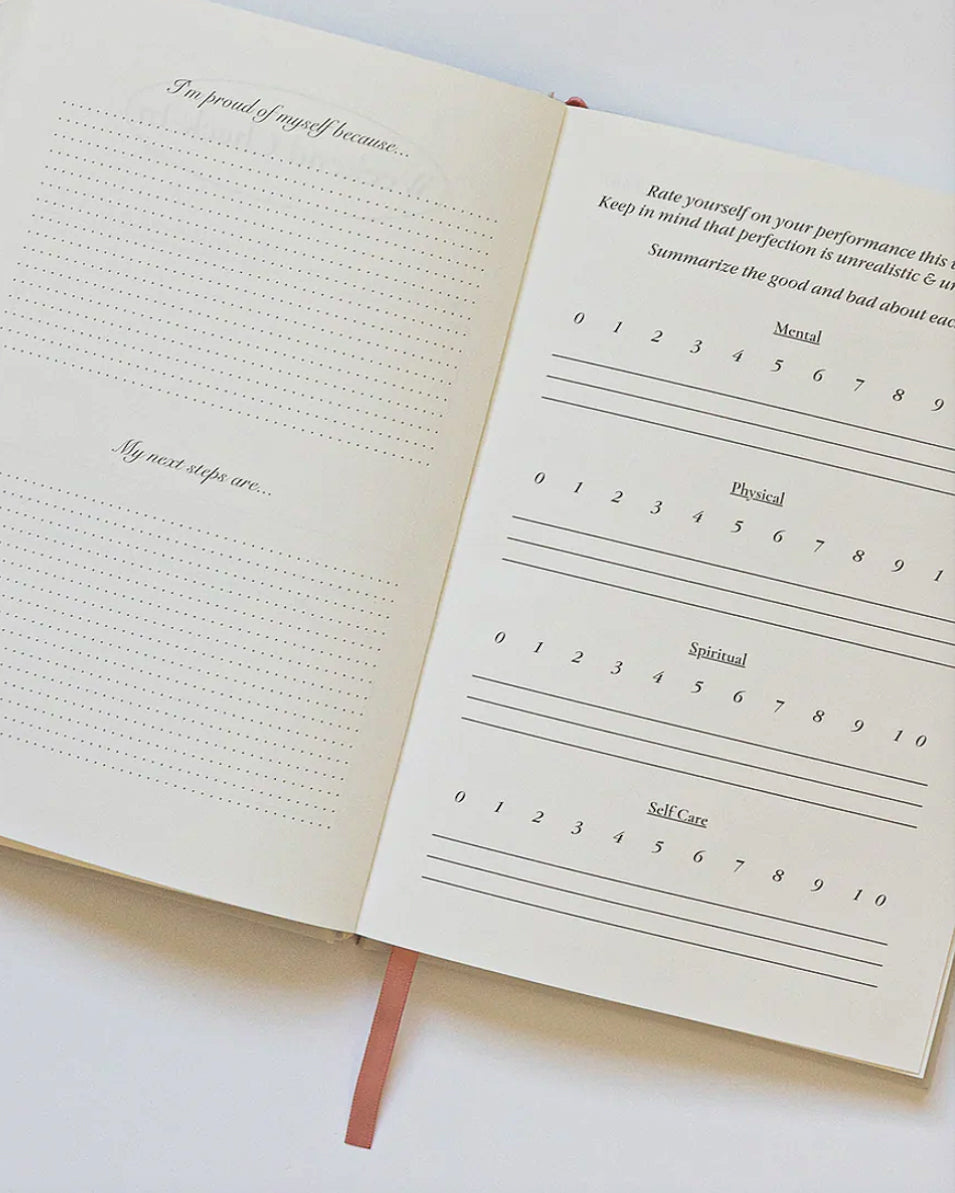 I'm proud of myself because...
My next steps are...
Rate yourself on your performance this
Keep in mind that perfection is unrealistic &
Summarize the good and bad about
Mental
0 1 2 3 4 5 6 7 8 9
Physical
0 1 2 3 4 5 6 7 8 9 1
Spiritual
0 1 2 3 4 5 6 7 8 9 10
Self Care
0 1 2 3 4 5 6 7 8 9 10